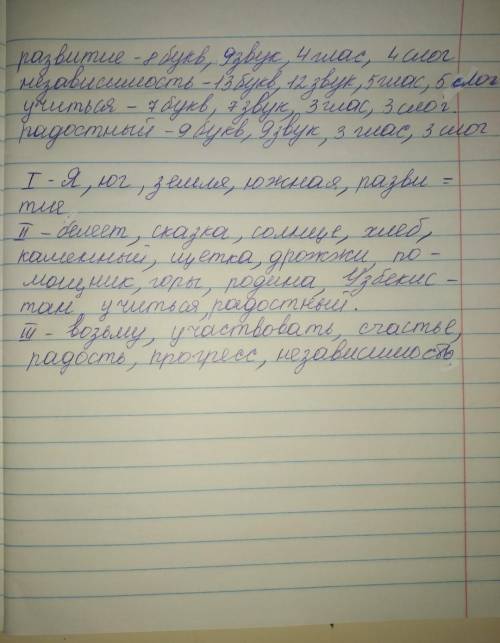 развитие - 8 букв, 9 звук, 4 глас, 4 слог
независимость - 13 букв, 12 звук, 5 глас, 5 слог
учиться - 7 букв, 7 звук, 3 глас, 3 слог.
радостный - 9 букв, 9 звук, 3 глас, 3 слог
I - Я, юг, земля, южная, разви =
тие
II - белеет, сказка, солнце, хлеб,
каменный, щетка, дрожжи, по -
мощник, горы, родина, Узбекис -
тан, учиться, радостный.
III - возьму, участвовать, счастье,
радость, прогресс, независимость